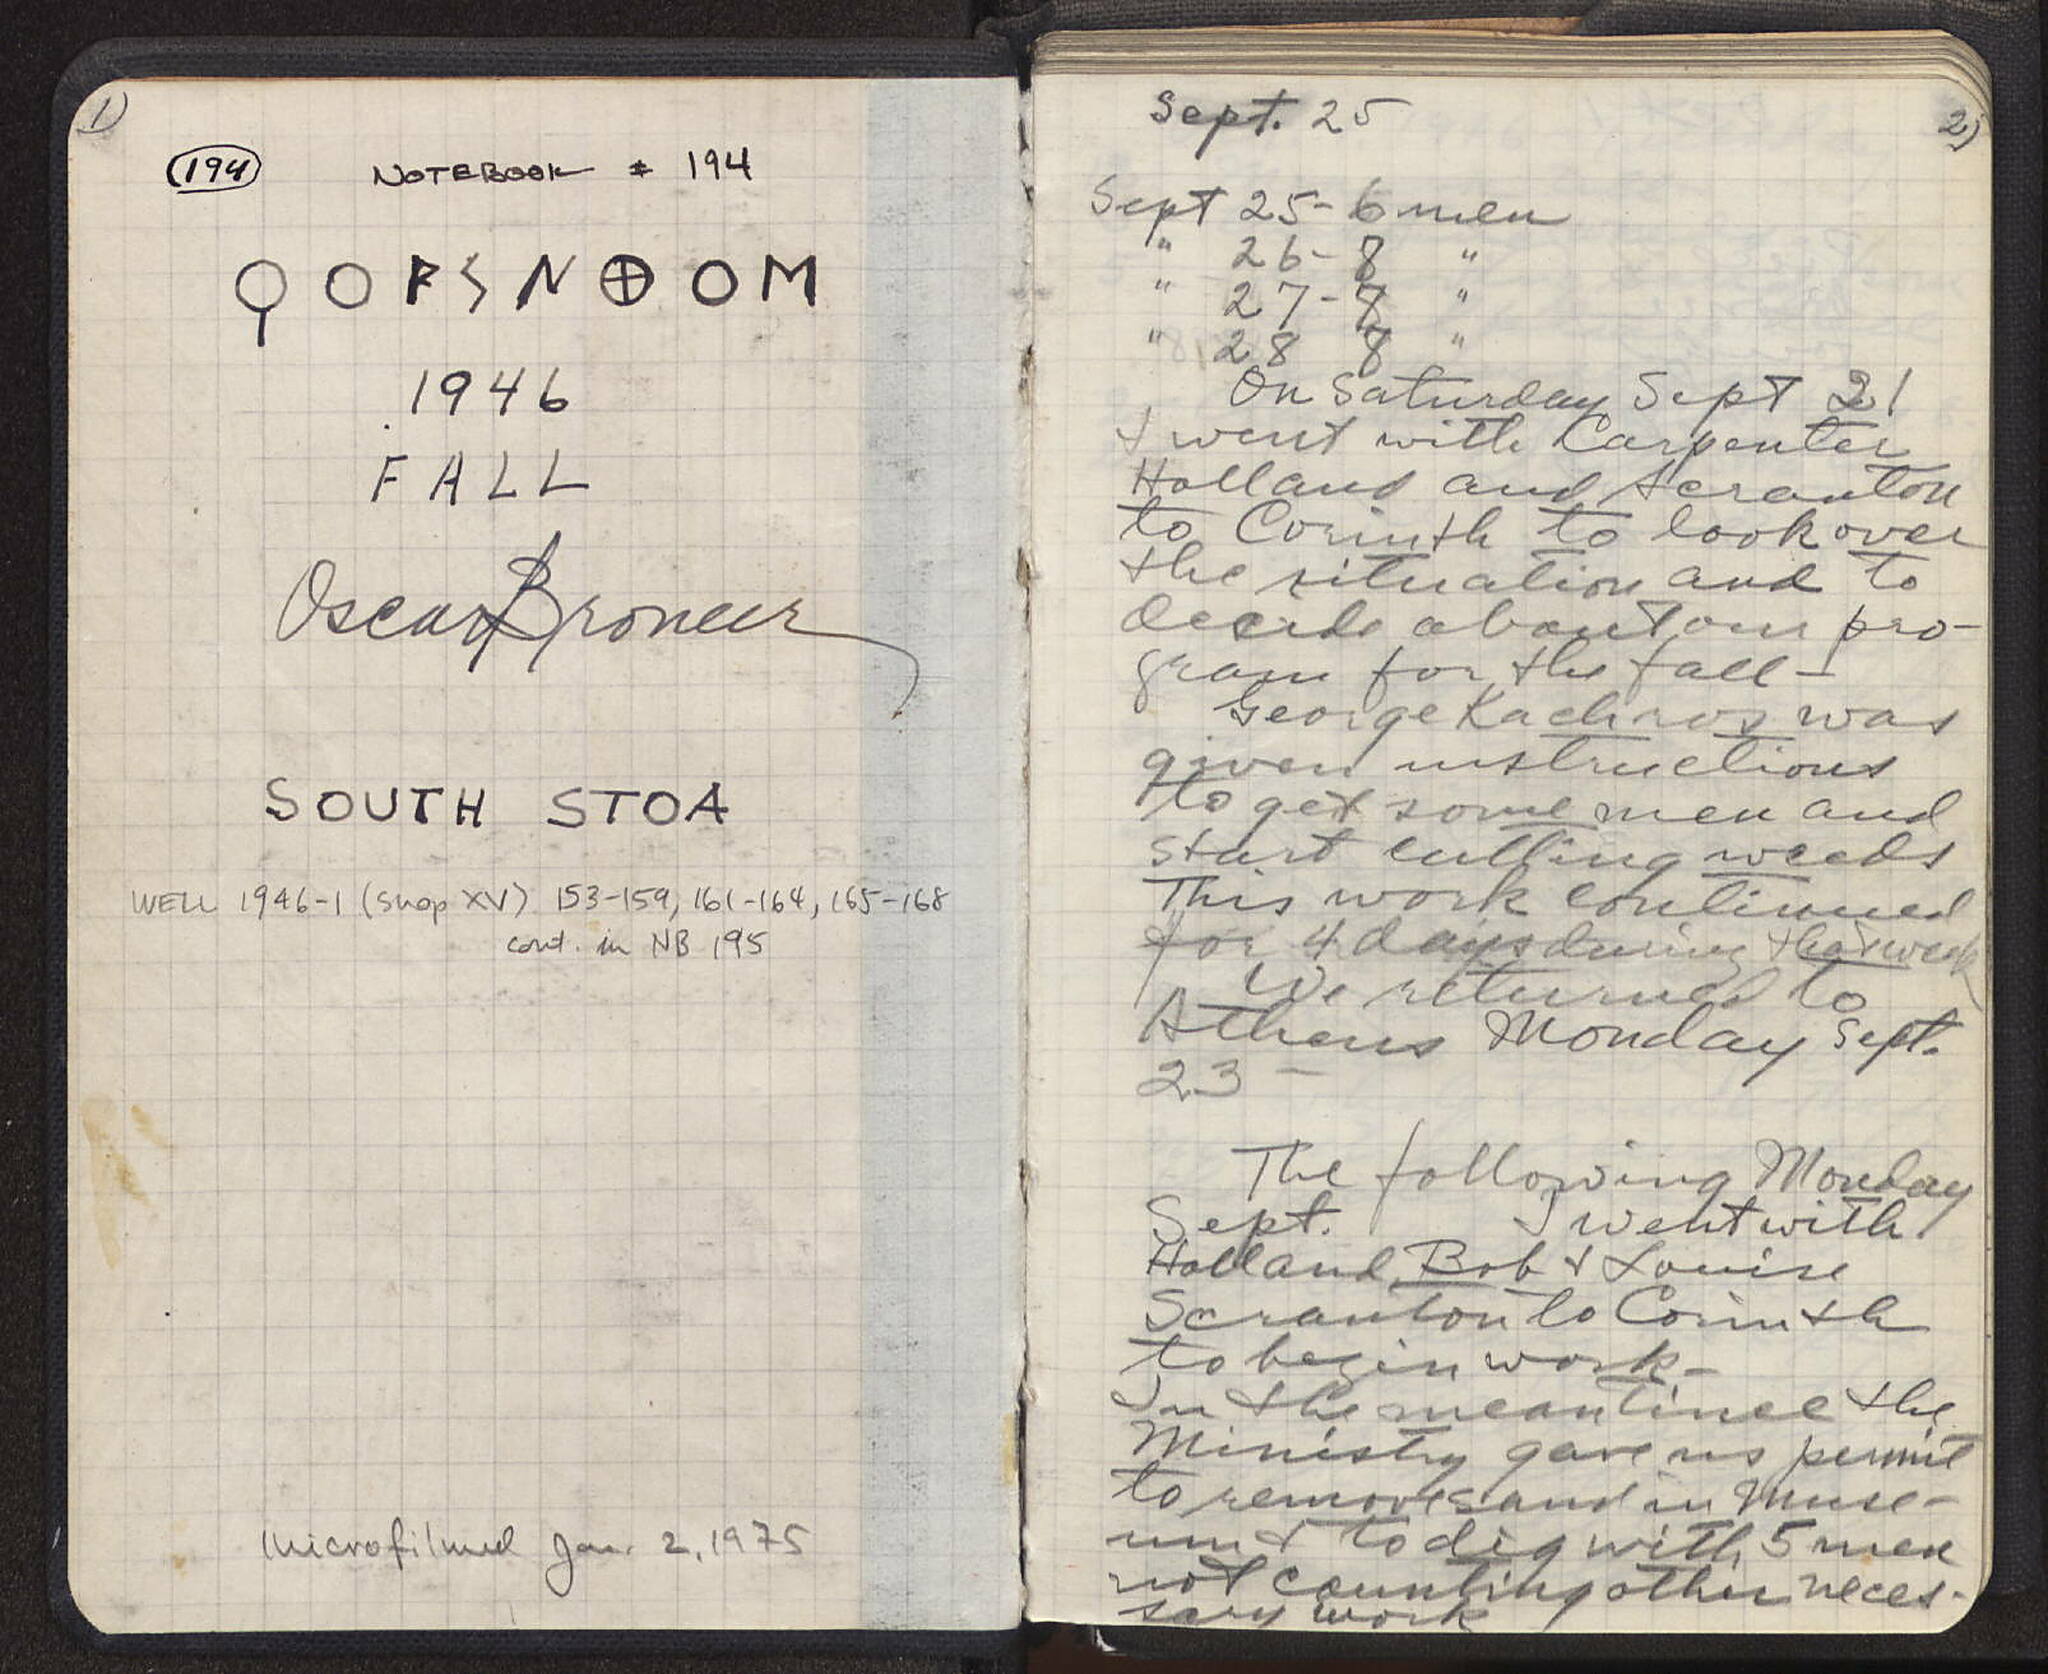 1)
194
NOTEBOOK # 194
ϘΟΡΣΝ⊕ΟΜ
1946
FALL
Oscar Broneer
SOUTH STOA
WELL 1946-1 (Shop XV) 153-159, 161-164, 165-168
cont. in NB 195
Microfilmed Jan. 2, 1975
2)
Sept. 25
Sept 25- 6 men
" 26- 8 "
" 27- 8 "
" 28 8 "
On Saturday Sept 21
I went with Carpenter
Holland and Scranton
to Corinth to look over
the situation and to
decide about our pro-
gram for the fall -
George Kachros was
given instructions
to get some men and
start cutting weeds
This work continued
for 4 days during that week
We returned to
Athens Monday Sept.
23 -
The following Monday
Sept. I went with
Holland, Bob & Louise
Scranton to Corinth
to begin work -
In the meantime the
Ministry gave us permit
to remove sand in Muse-
um & to dig with 5 men
not counting other neces-
sary work